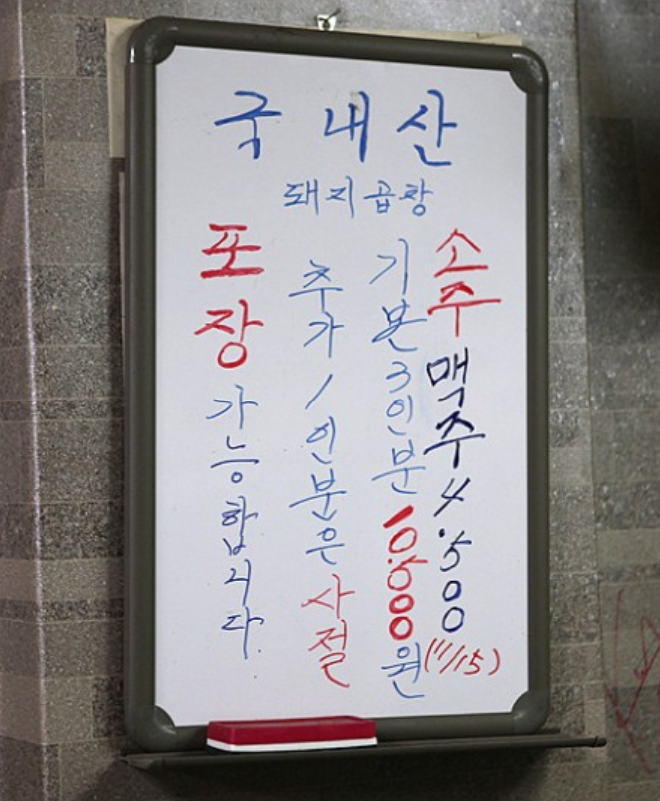 국내산
돼지곱창
소주 맥주 4.500
(11/15)
기본 3인분 10.500원
추가 1인분은 사절
포장 가능합니다